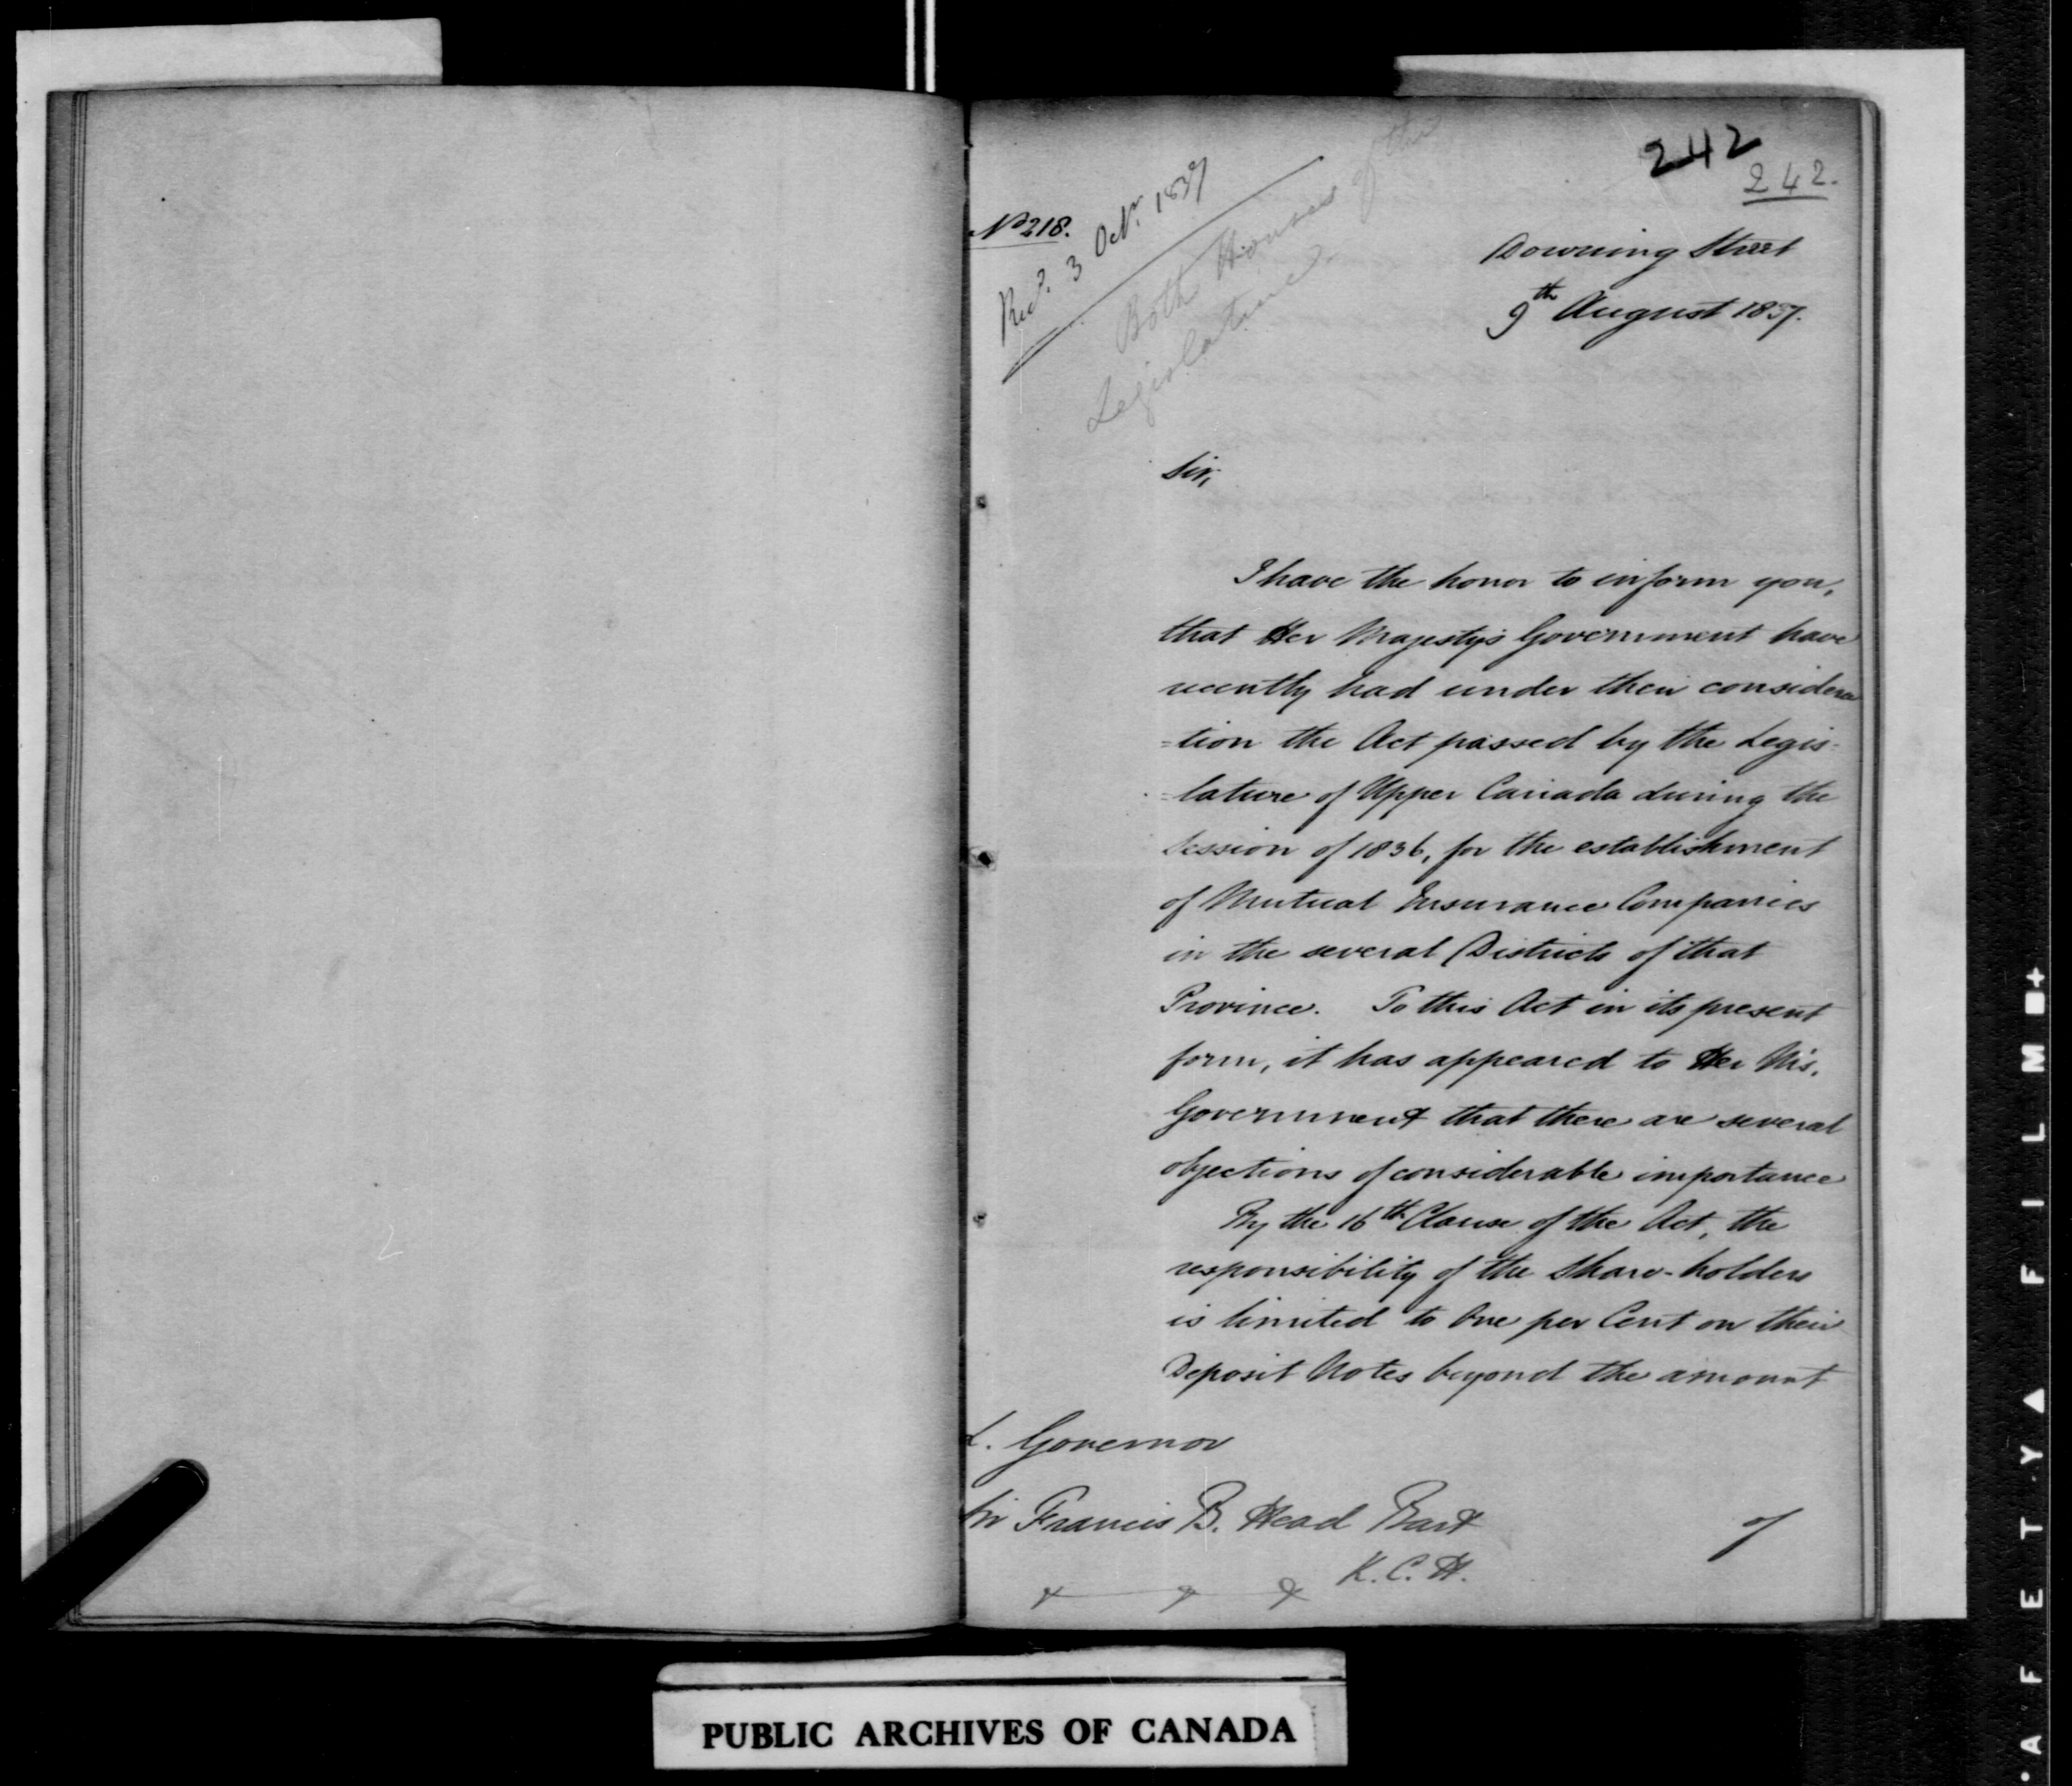 242
242.
No 218.
Recd. 3 Octr. 1837
Both Houses of the
Legislature.
Downing Street
9th August 1837.
Sir,
I have the honor to inform you,
that Her Majesty's Government have
recently had under their considera
=tion the Act passed by the Legis=
=lature of Upper Canada during the
Session of 1836, for the establishment
of Mutual Insurance Companies
in the several Districts of that
Province. To this Act in its present
form, it has appeared to Her M's.
Government that there are several
objections of considerable importance
By the 16th Clause of the Act, the
responsibility of the Share-holders
is limited to One per Cent on their
Deposit Notes beyond the amount
L. Governor
Sir Francis B. Head Bart
K.C.H.
of
PUBLIC ARCHIVES OF CANADA
AFETY▲FILM